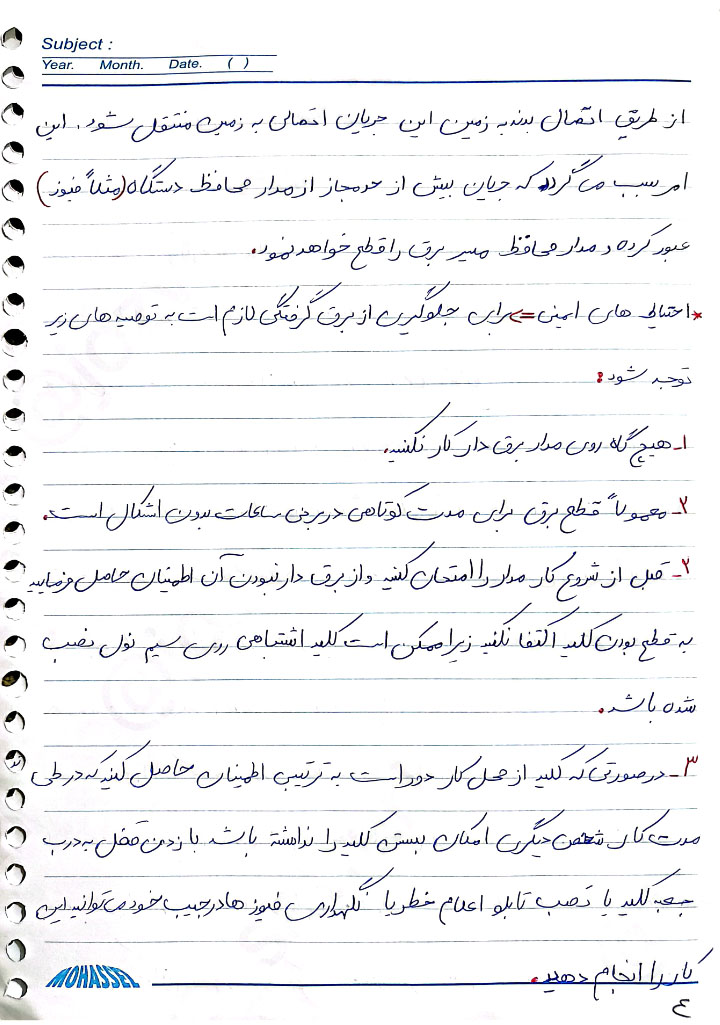 Subject :
Year. Month. Date. ( )
از طریق اتصال بدنه به زمین این جریان اتصالی به زمین منتقل شود. این
امر سبب می گردد که جریان بیش از حد مجاز از مدار محافظ دستگاه (مثلاً فیوز)
عبور کرده و مدار محافظ مسیر برق را قطع خواهد نمود.
* احتیاط های ایمنی => برای جلوگیری از برق گرفتگی لازم است به توصیه های زیر
توجه شود:
۱- هیچ گاه روی مدار برق دار کار نکنید.
۲- معمولاً قطع برق برای مدت کوتاهی در برخی ساعات بدون اشکال است.
۲- قبل از شروع کار مدار را امتحان کنید و از برق دار نبودن آن اطمینان حاصل فرمایید
به قطع بودن کلید اکتفا نکنید زیرا ممکن است کلید اشتباهی روی سیم نول نصب
شده باشد.
۳- در صورتی که کلید از محل کار دور است به ترتیبی اطمینان حاصل کنید که در طی
مدت کار شخص دیگری امکان بستن کلید را نداشته باشد با زدن قفل به درب
جعبه کلید یا نصب تابلو اعلام خطر یا نگهداری فیوز ها در جیب خود می توانید این
کار را انجام دهید.
MOHASSEL
٤